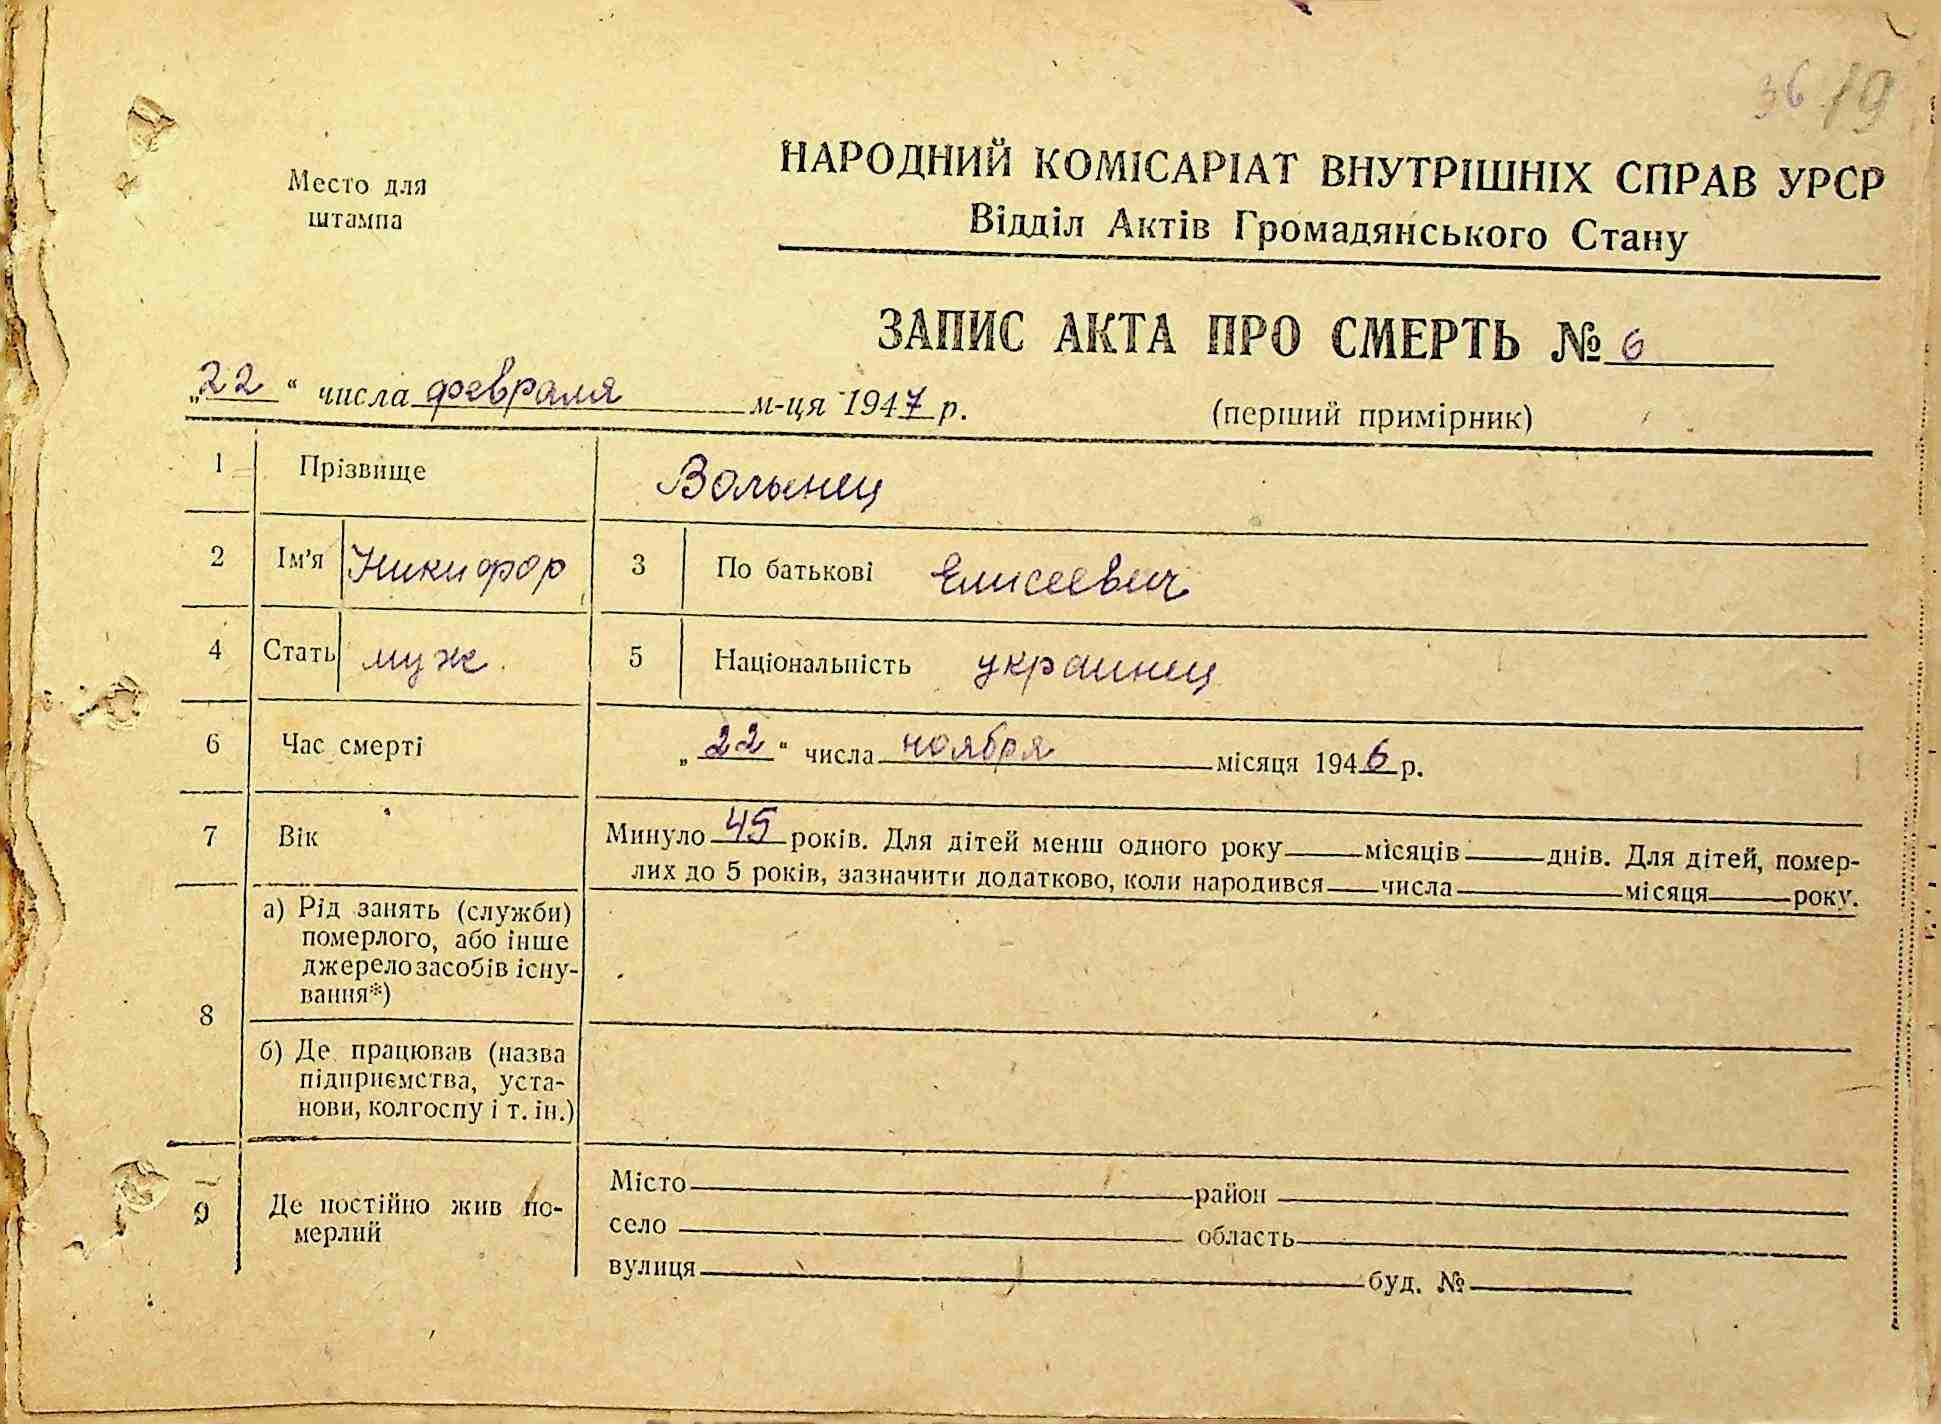 36 19
Место для
штампа
НАРОДНИЙ КОМІСАРІАТ ВНУТРІШНІХ СПРАВ УРСР
Відділ Актів Громадянського Стану
ЗАПИС АКТА ПРО СМЕРТЬ № 6
„22“ числа февраля м-ця 1947 р. (перший примірник)
1 Прізвище Волынец
2 Ім'я Никифор 3 По батькові Елисеевич
4 Стать муж. 5 Національність украинец
6 Час смерті „22“ числа ноября місяця 1946 р.
7 Вік Минуло 45 років. Для дітей менш одного року місяців днів. Для дітей, помер-
лих до 5 років, зазначити додатково, коли народився числа місяця року.
8 а) Рід занять (служби)
померлого, або інше
джерело засобів існу-
вання*)
б) Де працював (назва
підприємства, уста-
нови, колгоспу і т. ін.)
9 Де постійно жив по-
мерлий
Місто район
село область
вулиця буд. №